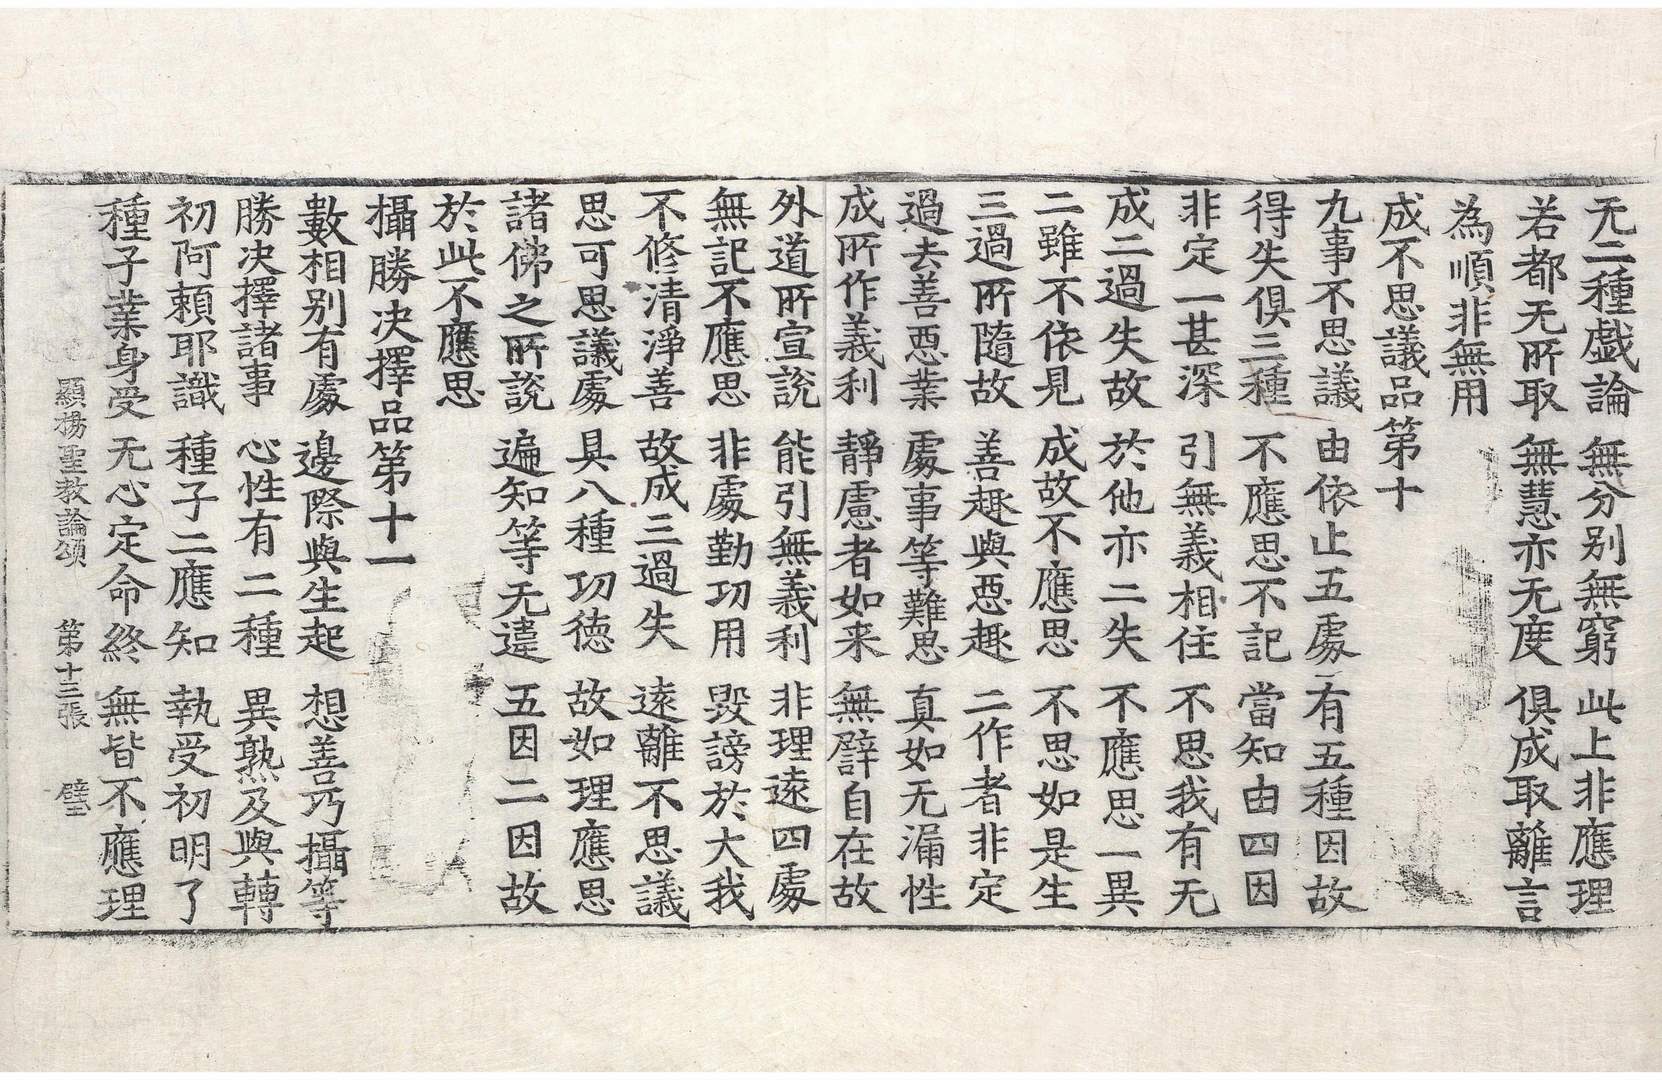 无二種戱論　無分別無窮　此上非應理
若都无所取　無慧亦无度　俱成取離言
為順非無用
成不思議品第十
九事不思議　由依止五處　有五種因故
得失俱三種　不應思不記　當知由四因
非定一甚深　引無義相住　不思我有无
成二過失故　於他亦二失　不應思一異
二雖不依見　成故不應思　不思如是生
三過所隨故　善趣與惡趣　二作者非定
過去善惡業　處事等難思　真如无漏性
成所作義利　靜慮者如来　無礕自在故
外道所宣說　能引無義利　非理遠四處
無記不應思　非處勤功用　毀謗於大我
不修清淨善　故成三過失　遠離不思議
思可思議處　具八種功德　故如理應思
諸佛之所說　遍知等无違　五因二因故
於此不應思
攝勝决擇品第十一
數相别有處　邊際與生起　想善巧攝等
勝决擇諸事　心性有二種　異熟及與轉
初阿頼耶識　種子二應知　執受初明了
種子業身受　无心定命終　無皆不應理
顯揚聖教論頌　第十三張　璧